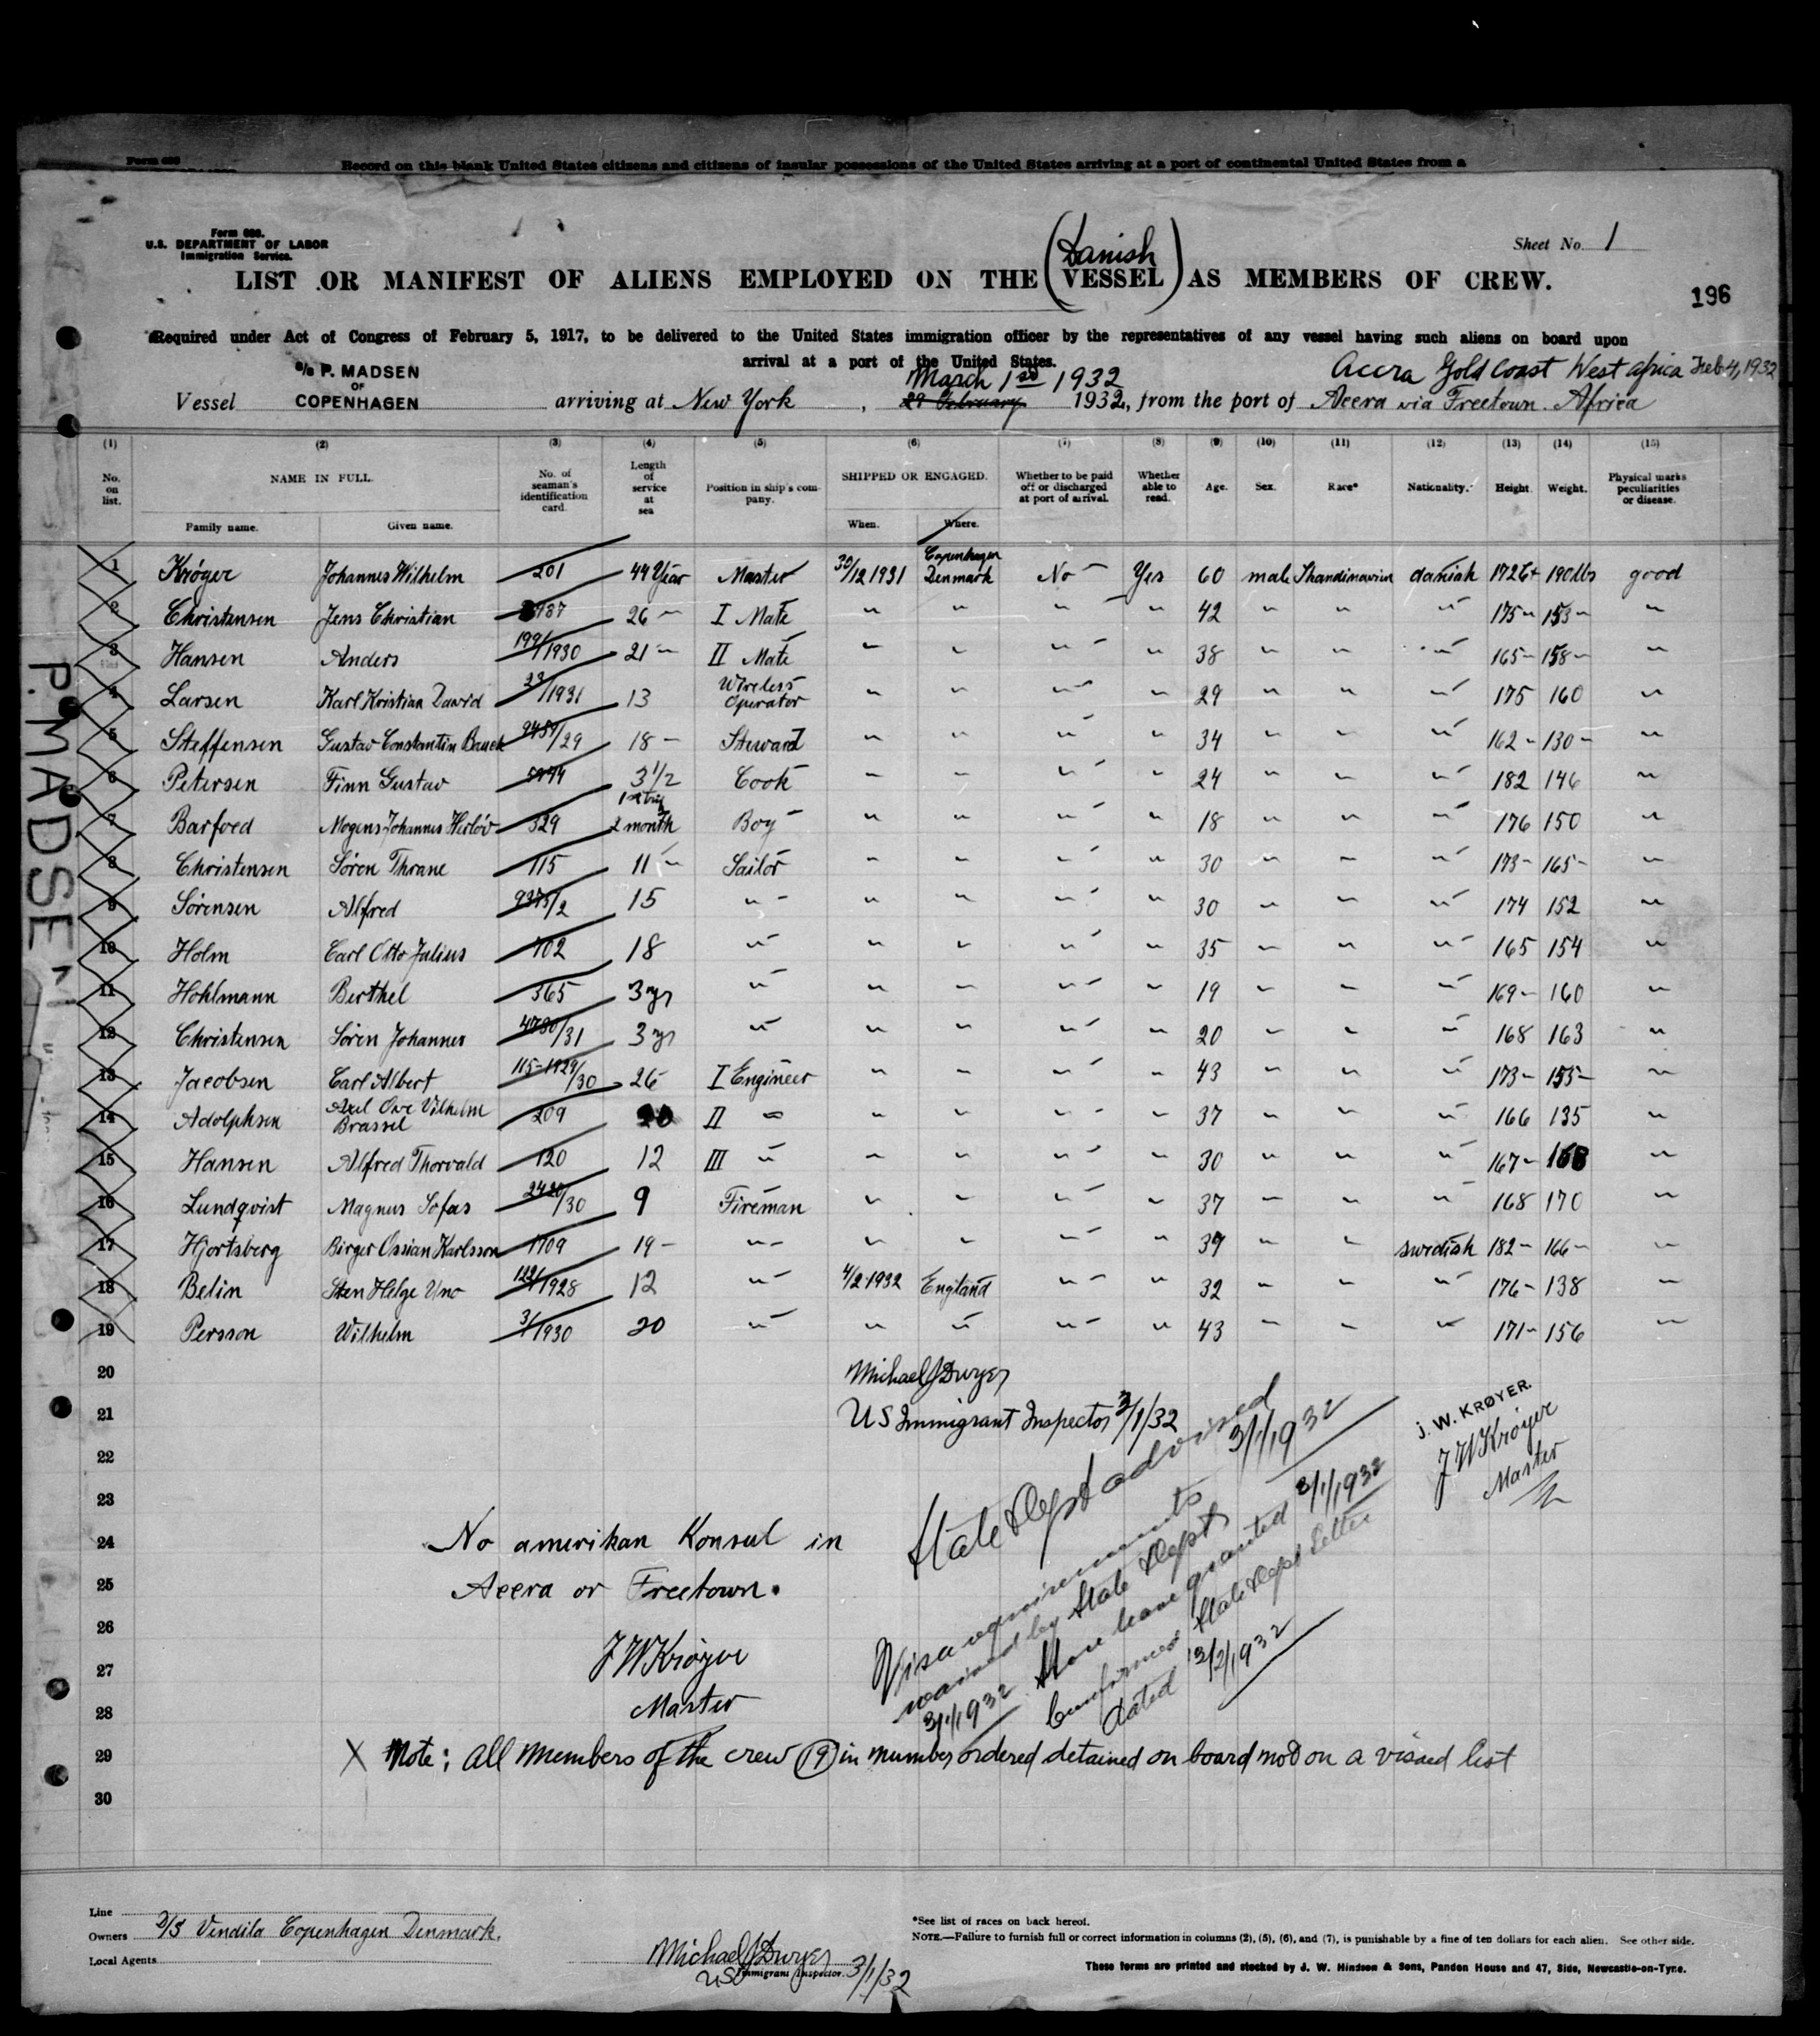 Form 689
Record on this blank United States citizens and citizens of insular possessions of the United States arriving at a port of continental United States from a
Form 689.
U.S. DEPARTMENT OF LABOR
Immigration Service.
Sheet No. 1
LIST OR MANIFEST OF ALIENS EMPLOYED ON THE (Danish VESSEL) AS MEMBERS OF CREW.
196
Required under Act of Congress of February 5, 1917, to be delivered to the United States immigration officer by the representatives of any vessel having such aliens on board upon
arrival at a port of the United States.
Accra Gold Coast West africa Feb 4, 1932
March 1st 1932
Vessel S/S P. MADSEN OF COPENHAGEN arriving at New York, 29 February 1932, from the port of Accra via Freetown. Africa
(1) (2) (3) (4) (5) (6) (7) (8) (9) (10) (11) (12) (13) (14) (15)
No. on list. NAME IN FULL. No. of seaman's identification card. Length of service at sea Position in ship's company. SHIPPED OR ENGAGED. Whether to be paid off or discharged at port of arrival. Whether able to read. Age. Sex. Race* Nationality. Height. Weight. Physical marks peculiarities or disease.
Family name. Given name. When. Where.
1 Krøyer Johannes Wilhelm 201 44 Year Master 30/12 1931 Copenhagen Denmark No Yes 60 male Skandinavien danish 172 190 lbs good
2 Christensen Jens Christian 26 " I Mate " " " " 42 " " " 175 " 153 " "
3 Hansen Anders 199/1930 21 " II Mate " " " " 38 " " " 165 " 158 " "
4 Larsen Karl Kristian David 23/1931 13 Wireless Operator " " " " 29 " " " 175 160 "
5 Steffensen Gustav Constantin 9454/29 18 " Steward " " " " 34 " " " 162 " 130 " "
6 Petersen Finn Gustav 3 1/2 Cook " " " " 24 " " " 182 146 "
7 Barfoed Mogens Johannes 329 2 month Boy " " " " 18 " " " 176 150 "
8 Christensen Sören Thrane 115 11 " Sailor " " " " 30 " " " 173 " 165 " "
9 Sörensen Alfred 15 " " " " " 30 " " " 174 152 "
10 Holm Carl Otto Julius 702 18 " " " " " 35 " " " 165 154 "
11 Hohlmann Berthel 365 3 yr " " " " " 19 " " " 169 " 160 "
12 Christensen Sören Johannes 4730/31 3 yr " " " " " 20 " " " 168 163 "
13 Jacobsen Carl Albert 115-1929/30 26 I Engineer " " " " 43 " " " 173 " 155 " "
14 Adolphsen Axel Ove Vilhelm Brassel 209 20 II " " " " " 37 " " " 166 135 "
15 Hansen Alfred Thorvald 120 12 III " " " " " 30 " " " 167 " 168 "
16 Lundqvist Magnus Sofus 2420/30 9 Fireman " " " " 37 " " " 168 170 "
17 Hjortsberg Birger Ossian Karlsson 1709 19 " " " " " " 39 " " swedish 182 " 166 " "
18 Belin Sten Helge Uno 122/1928 12 " 4/2 1932 England " " 32 " " " 176 " 138 "
19 Persson Wilhelm 3/1930 20 " " " " " 43 " " " 171 " 156 "
20
21
22
23
24
25
26
27
28
29
30
P. MADSEN
Michael J Dwyer
US Immigrant Inspector 3/1/32
State Dept advised
3/1/1932
J. W. KRØYER.
J W Krøyer
Master
No amerikan Konsul in
Accra or Freetown.
J W Krøyer
Master
Visa requirements
waived by State Dept
3/1/1932 Shore leave granted 3/1/1932
Confirmed State Dept Letter
dated 3/2/1932
X Note: All members of the crew (19) in number ordered detained on board not on a visaed list
Line
Owners D/S Vendila Copenhagen Denmark.
Local Agents
Michael J Dwyer
US Immigrant Inspector. 3/1/32
*See list of races on back hereof.
NOTE.—Failure to furnish full or correct information in columns (2), (5), (6), and (7), is punishable by a fine of ten dollars for each alien. See other side.
These forms are printed and stocked by J. W. Hindson & Sons, Pandon House and 47, Side, Newcastle-on-Tyne.